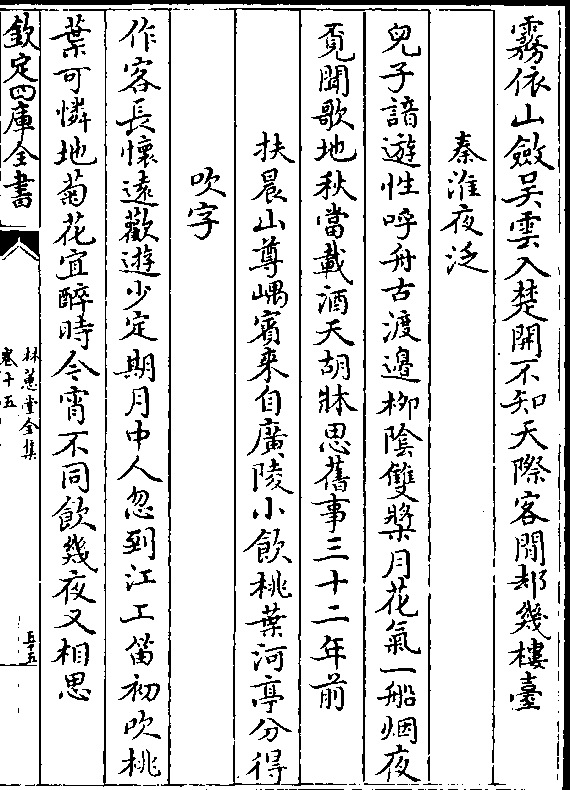 霧依山斂吳雲入楚開不知天際客閒却幾樓臺
秦淮夜泛
兒子諳遊性呼舟古渡邊柳陰雙槳月花氣一船烟夜
覔聞歌地秋當載酒天胡牀思舊事三十二年前
扶晨山尊嵎賓來自廣陵小飲桃葉河亭分得
吹字
作客長懷遠歡遊少定期月中人忽到江工笛初吹桃
葉可憐地菊花宜醉時今宵不同飲幾夜又相思
欽定四庫全書
林蕙堂全集
卷十五